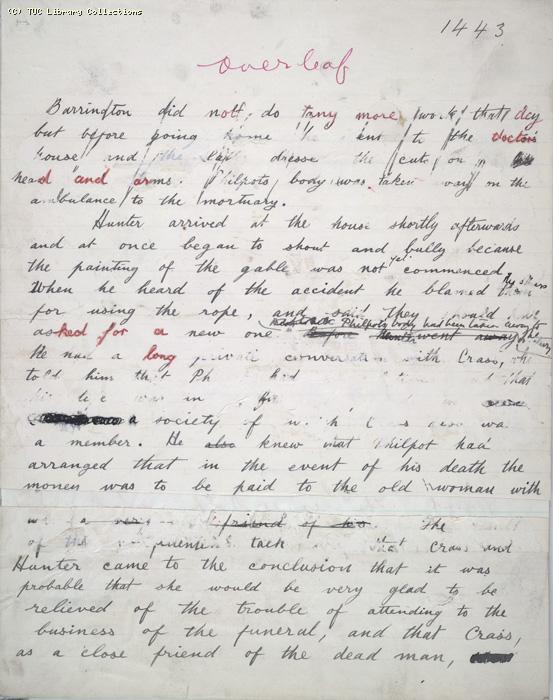 (C) TUC Library Collections
1443
overleaf
Barrington did not do any more work that day
but before going home he went to the doctor's
house and the latter dressed the cuts on
head and arms. Philpot's body was taken away on the
ambulance to the mortuary.
Hunter arrived at the house shortly afterwards
and at once began to shout and bully because
the painting of the gable was not yet commenced.
When he heard of the accident he blamed them
for using the rope, and said they should have
asked for a new one. Philpot's body had been taken away to
Before went away
He had a long private conversation with Crass, who
told him that Ph had that
his life was in
a society of which Crass also was
a member. He also knew that Philpot had
arranged that in the event of his death the
money was to be paid to the old woman with
a very friend of his. The
of this talk that Crass and
Hunter came to the conclusion that it was
probable that she would be very glad to be
relieved of the trouble of attending to the
business of the funeral, and that Crass,
as a close friend of the dead man,